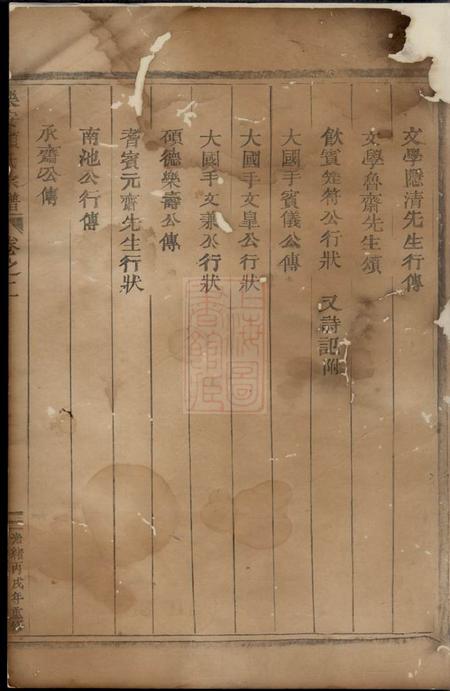 文學隱清先生行傳
文學魯齋先生頌
飲賓筵符公行狀 又詩記附
大國手賓儀公傳
大國手文皐公行狀
大國手文兼公行狀
碩德樂壽公傳
耆賓元齋先生行狀
南池公行傳
承齋公傳
卷之二
光緒丙戌年重修
上海圖書館藏